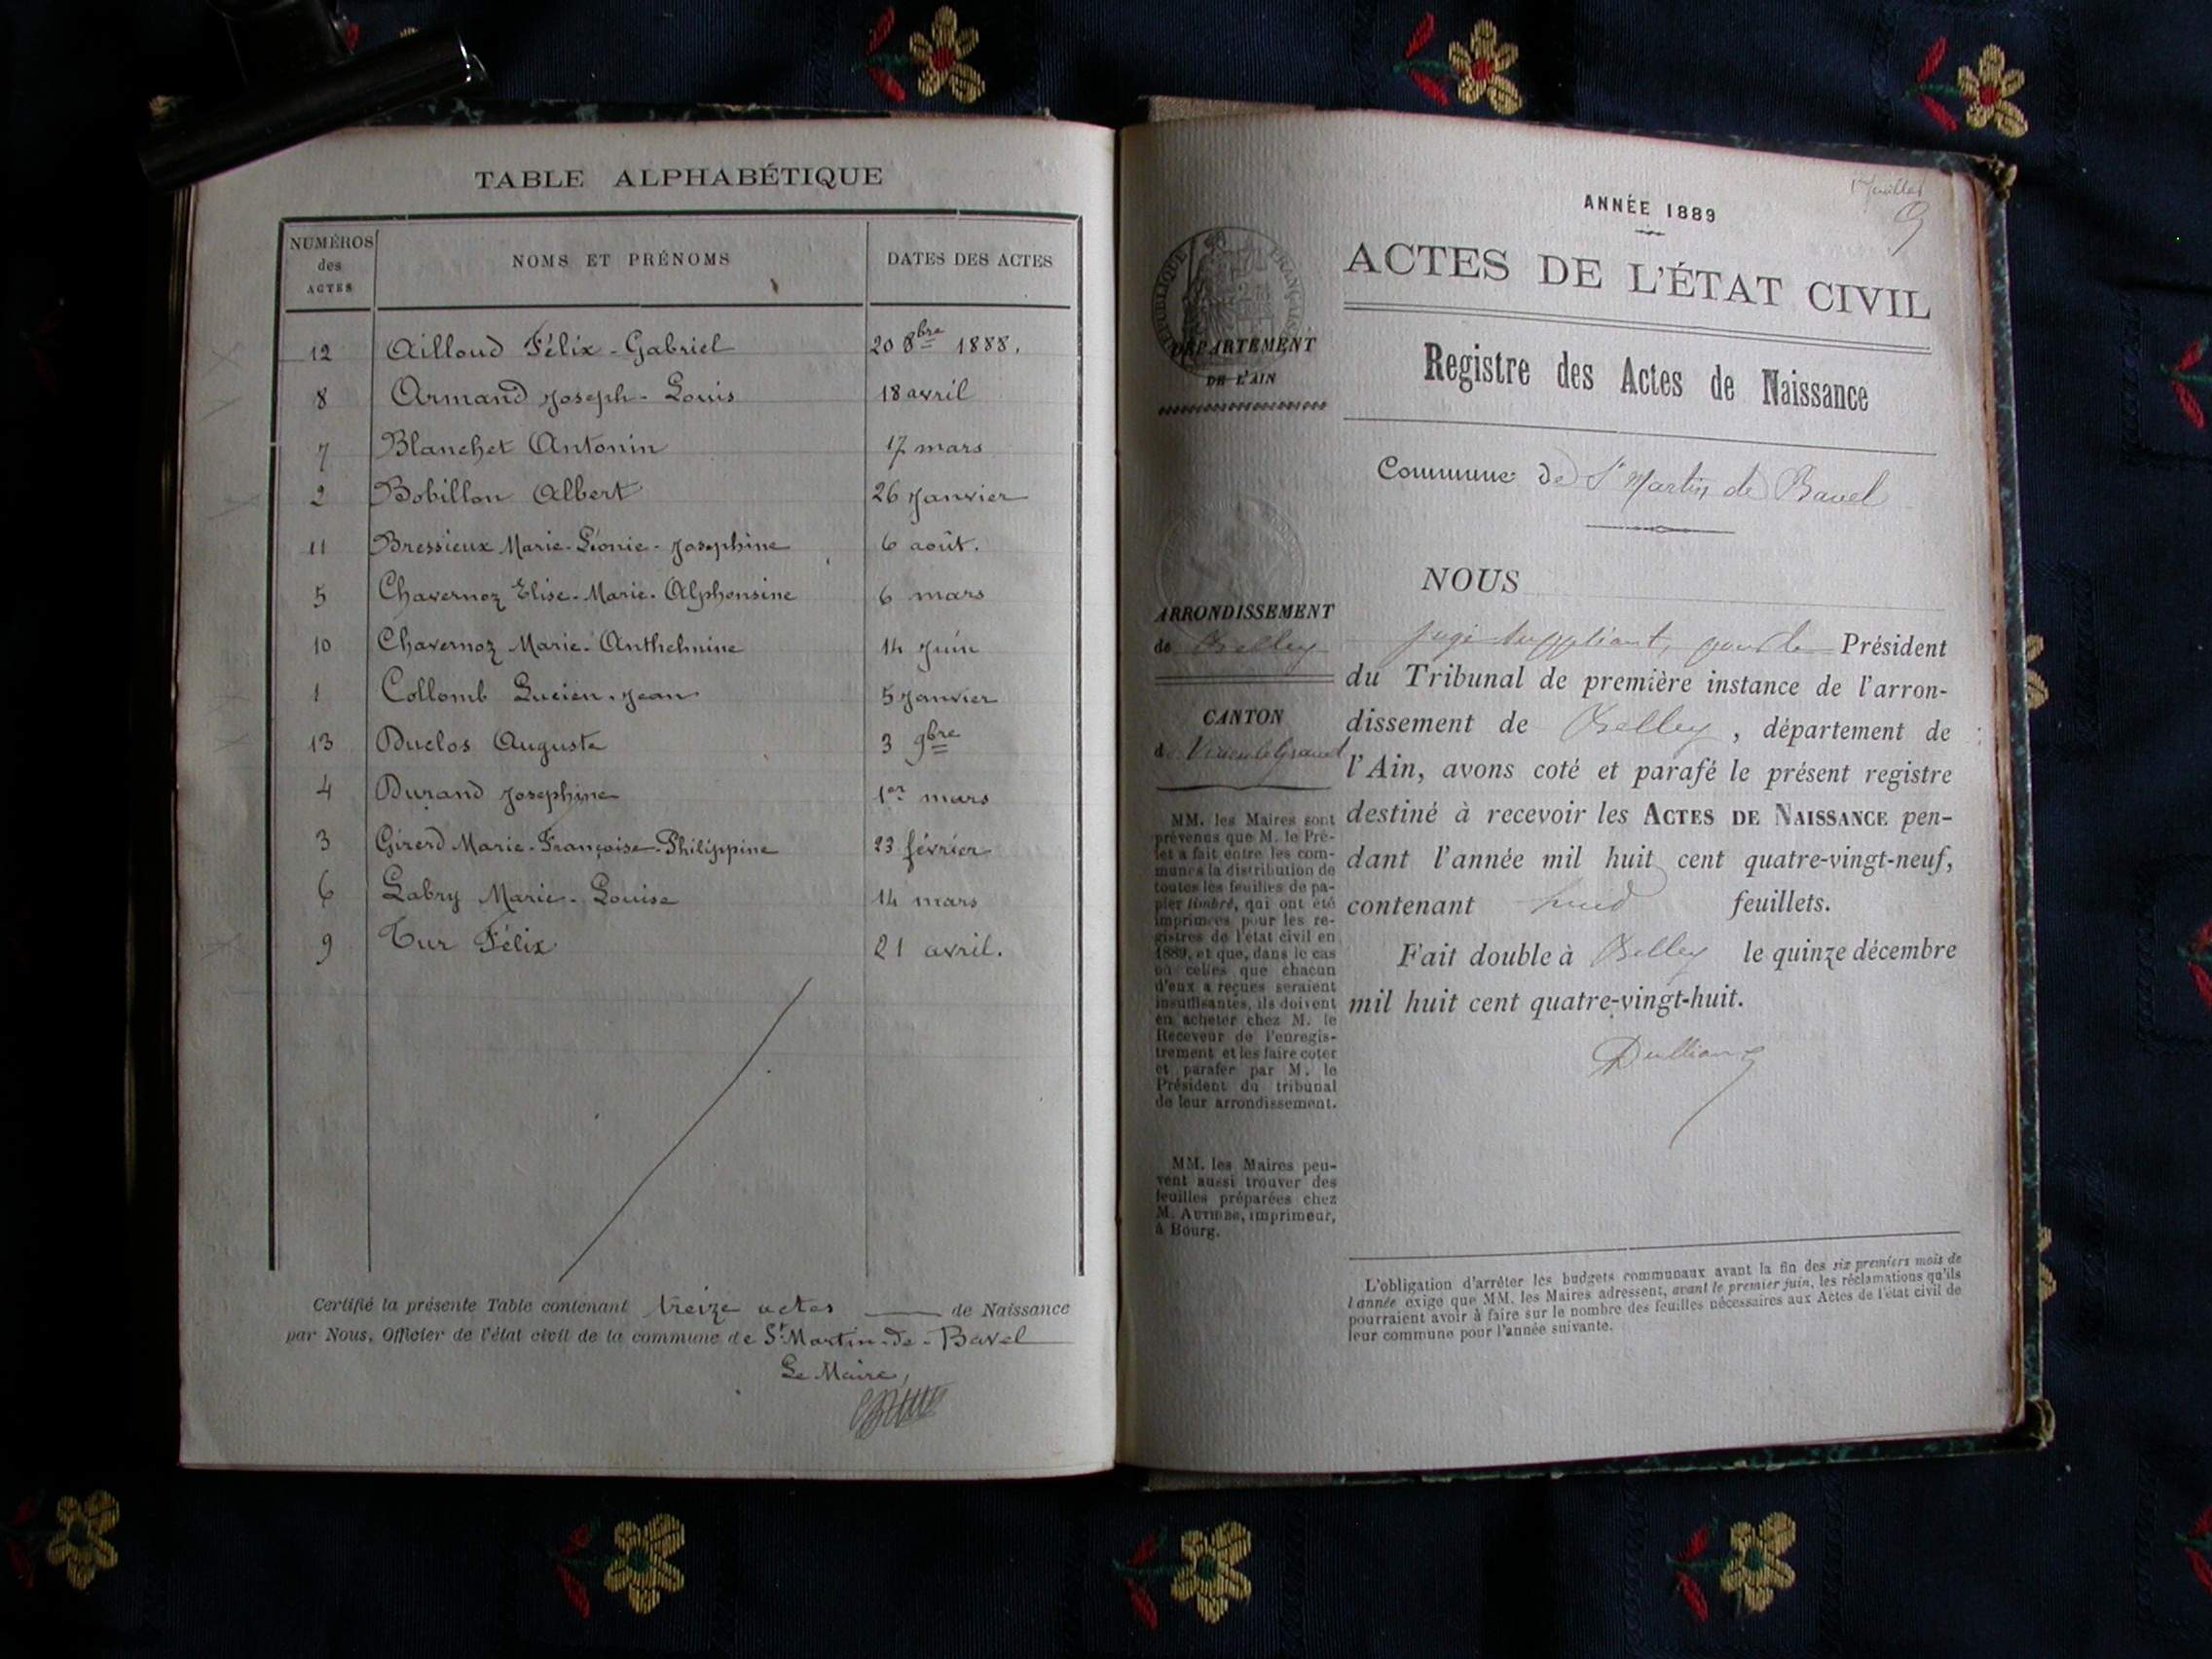 TABLE ALPHABÉTIQUE
NUMÉROS des ACTES NOMS ET PRÉNOMS DATES DES ACTES
12 Ailloud Félix-Gabriel 20 8bre 1888.
8 Armand Joseph-Louis 18 avril
7 Blanchet Antonin 17 mars
2 Bobillon Albert 26 Janvier
11 Bressieux Marie-Léonie-Josephine 6 août.
5 Chavernoz Elise-Marie-Alphonsine 6 mars
10 Chavernoz Marie-Anthelmine 14 Juin
1 Collomb Lucien-Jean 5 Janvier
13 Duclos Auguste 3 9bre
4 Durand Josephine 1er mars
3 Girerd Marie-Françoise-Philippine 23 février
6 Labry Marie-Louise 14 mars
9 Tur Félix 21 avril.
Certifié la présente Table contenant treize actes de Naissance
par Nous, Officier de l'état civil de la commune de St Martin-de-Bavel
Le Maire,
1er feuillet
ANNÉE 1889
ACTES DE L'ÉTAT CIVIL
Registre des Actes de Naissance
Commune de St Martin de Bavel
RÉPUBLIQUE FRANÇAISE
DÉPARTEMENT
DE L'AIN
ARRONDISSEMENT
de Belley
CANTON
de Virieu le Grand
MM. les Maires sont
prévenus que M. le Pré-
fet a fait entre les com-
munes la distribution de
toutes les feuilles de pa-
pier timbré, qui ont été
imprimées pour les re-
gistres de l'état civil en
1889, et que, dans le cas
où celles que chacun
d'eux a reçues seraient
insuffisantes, ils doivent
en acheter chez M. le
Receveur de l'enregis-
trement et les faire coter
et parafer par M. le
Président du tribunal
de leur arrondissement.
MM. les Maires peu-
vent aussi trouver des
feuilles préparées chez
M. AUTHIER, imprimeur,
à Bourg.
NOUS
juge suppléant, pour le Président
du Tribunal de première instance de l'arron-
dissement de Belley, département de
l'Ain, avons coté et parafé le présent registre
destiné à recevoir les ACTES DE NAISSANCE pen-
dant l'année mil huit cent quatre-vingt-neuf,
contenant feuillets.
Fait double à Belley le quinze décembre
mil huit cent quatre-vingt-huit.
L'obligation d'arrêter les budgets communaux avant la fin des six premiers mois de
l'année exige que MM. les Maires adressent, avant le premier juin, les réclamations qu'ils
pourraient avoir à faire sur le nombre des feuilles nécessaires aux Actes de l'état civil de
leur commune pour l'année suivante.